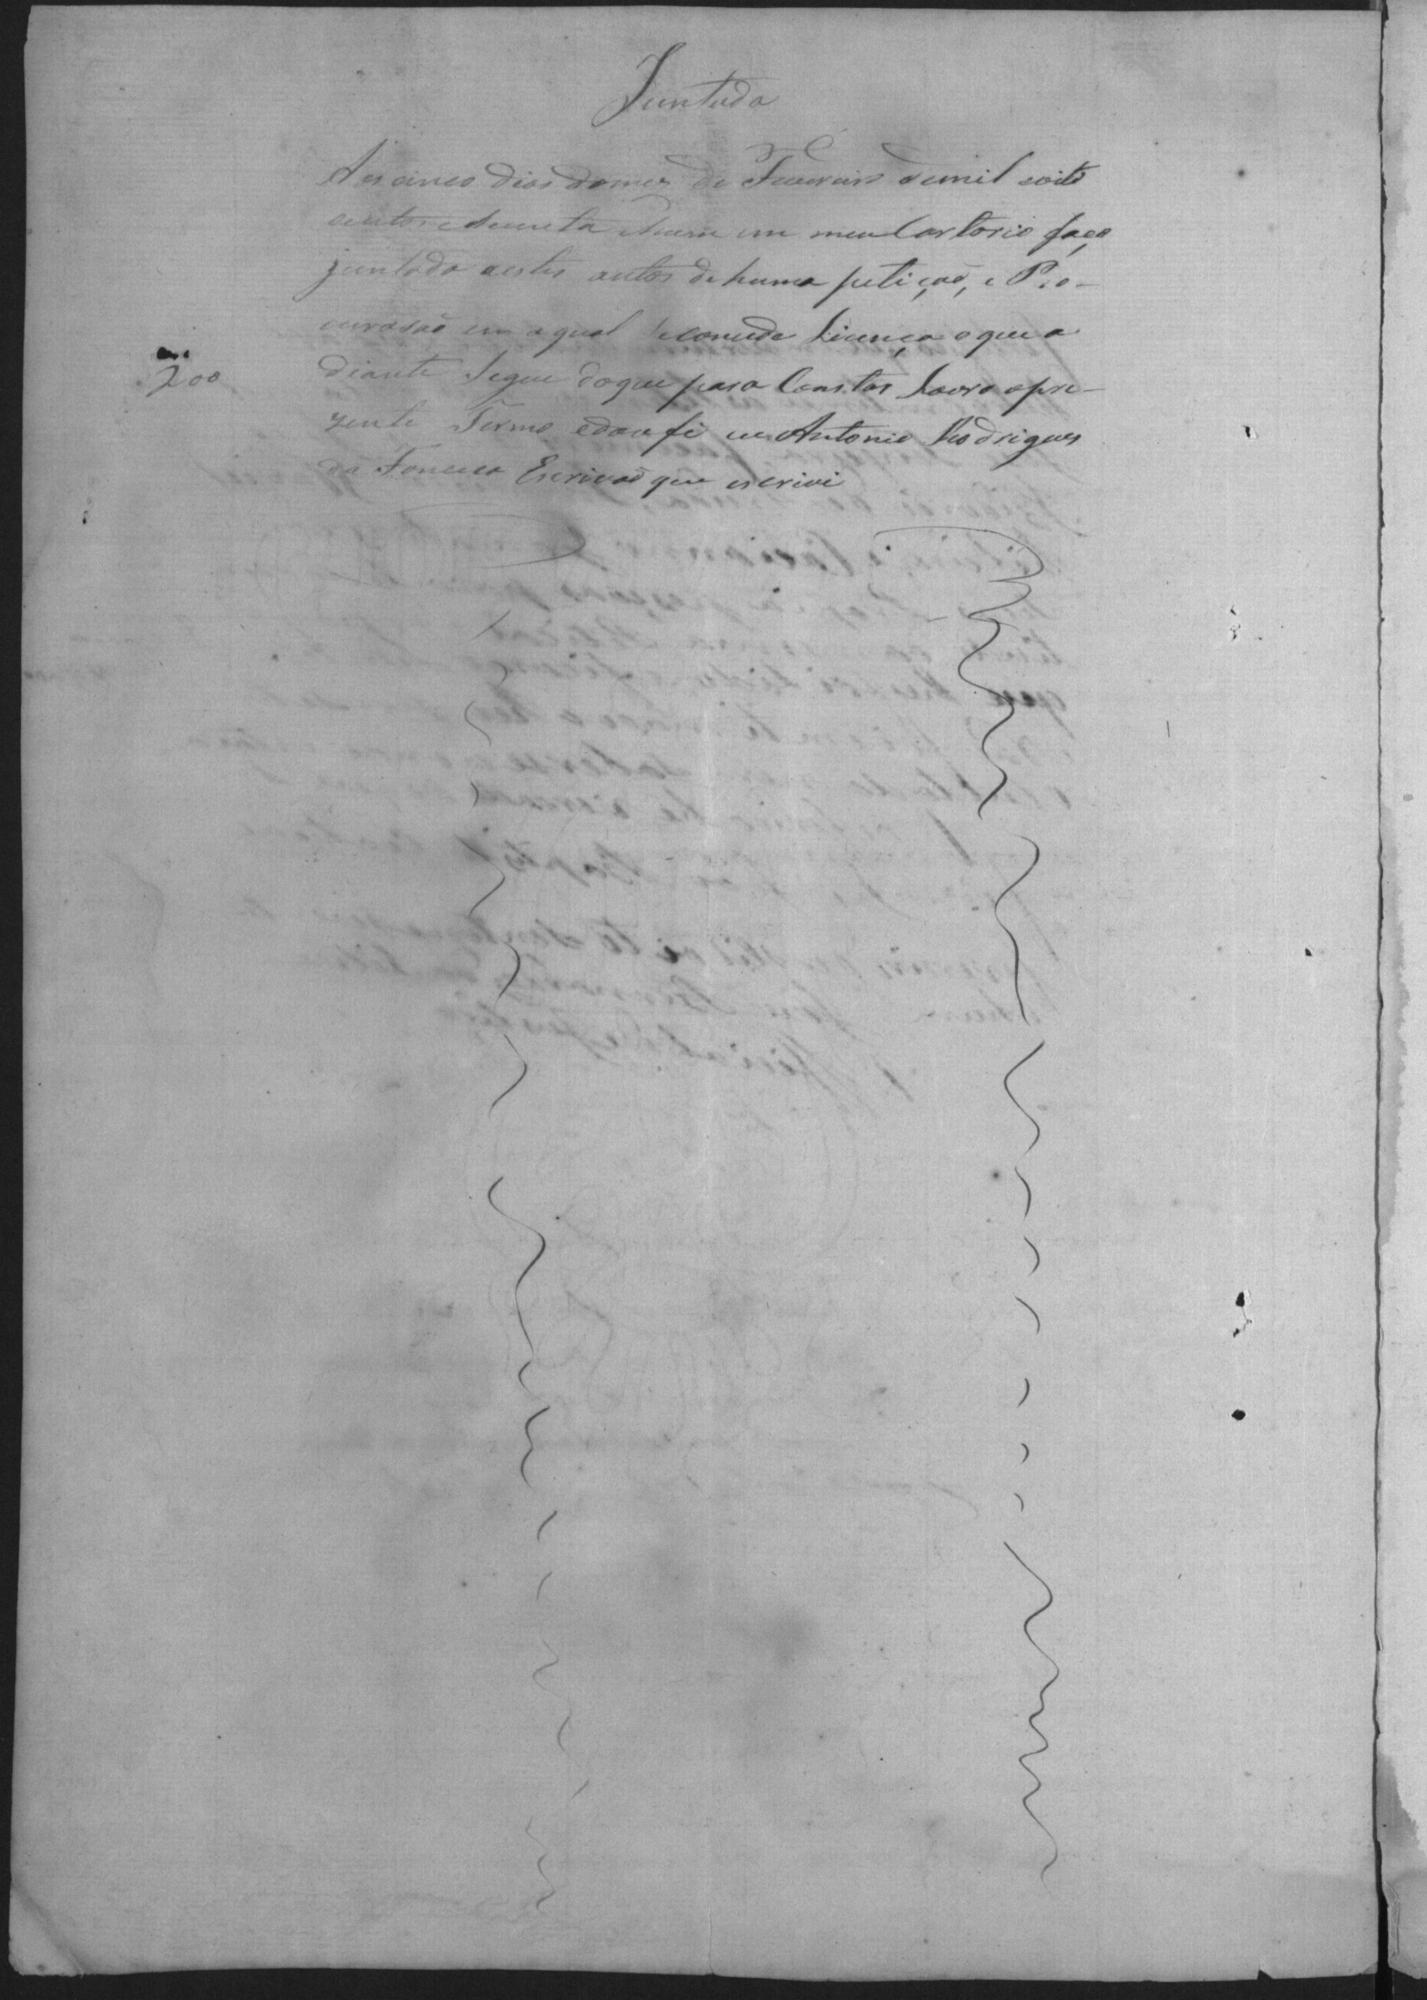 Juntada
Aos cinco dias do mes de Fevereiro de mil oito
centos e secenta e hum em meu Cartorio faço
juntada aestes autos de huma petiçaõ, e Pro-
curasaõ em aqual se consede licença oque a
200
diante Segue doque para Constar lavro opre-
zente Termo edou fé eu Antonio Rodrigues
da Fonceca Escrivaõ que escrivi